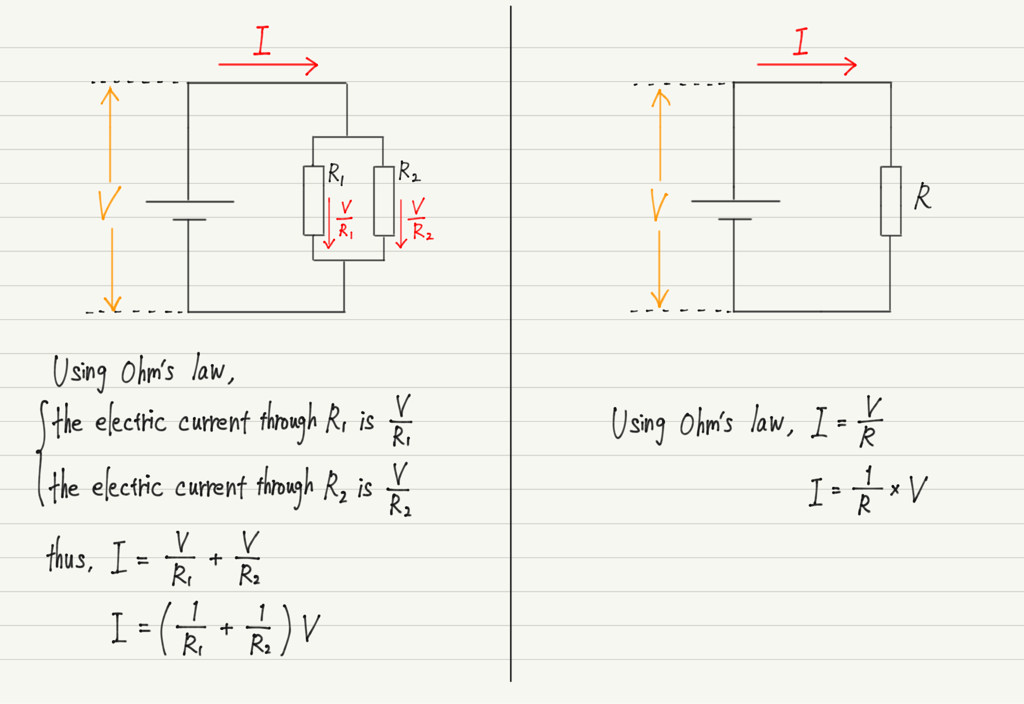 I
V
R₁
R₂
V/R₁
V/R₂
Using Ohm's law,
the electric current through R₁ is V/R₁
the electric current through R₂ is V/R₂
thus, I = V/R₁ + V/R₂
I = (1/R₁ + 1/R₂) V
I
V
R
Using Ohm's law, I = V/R
I = 1/R × V